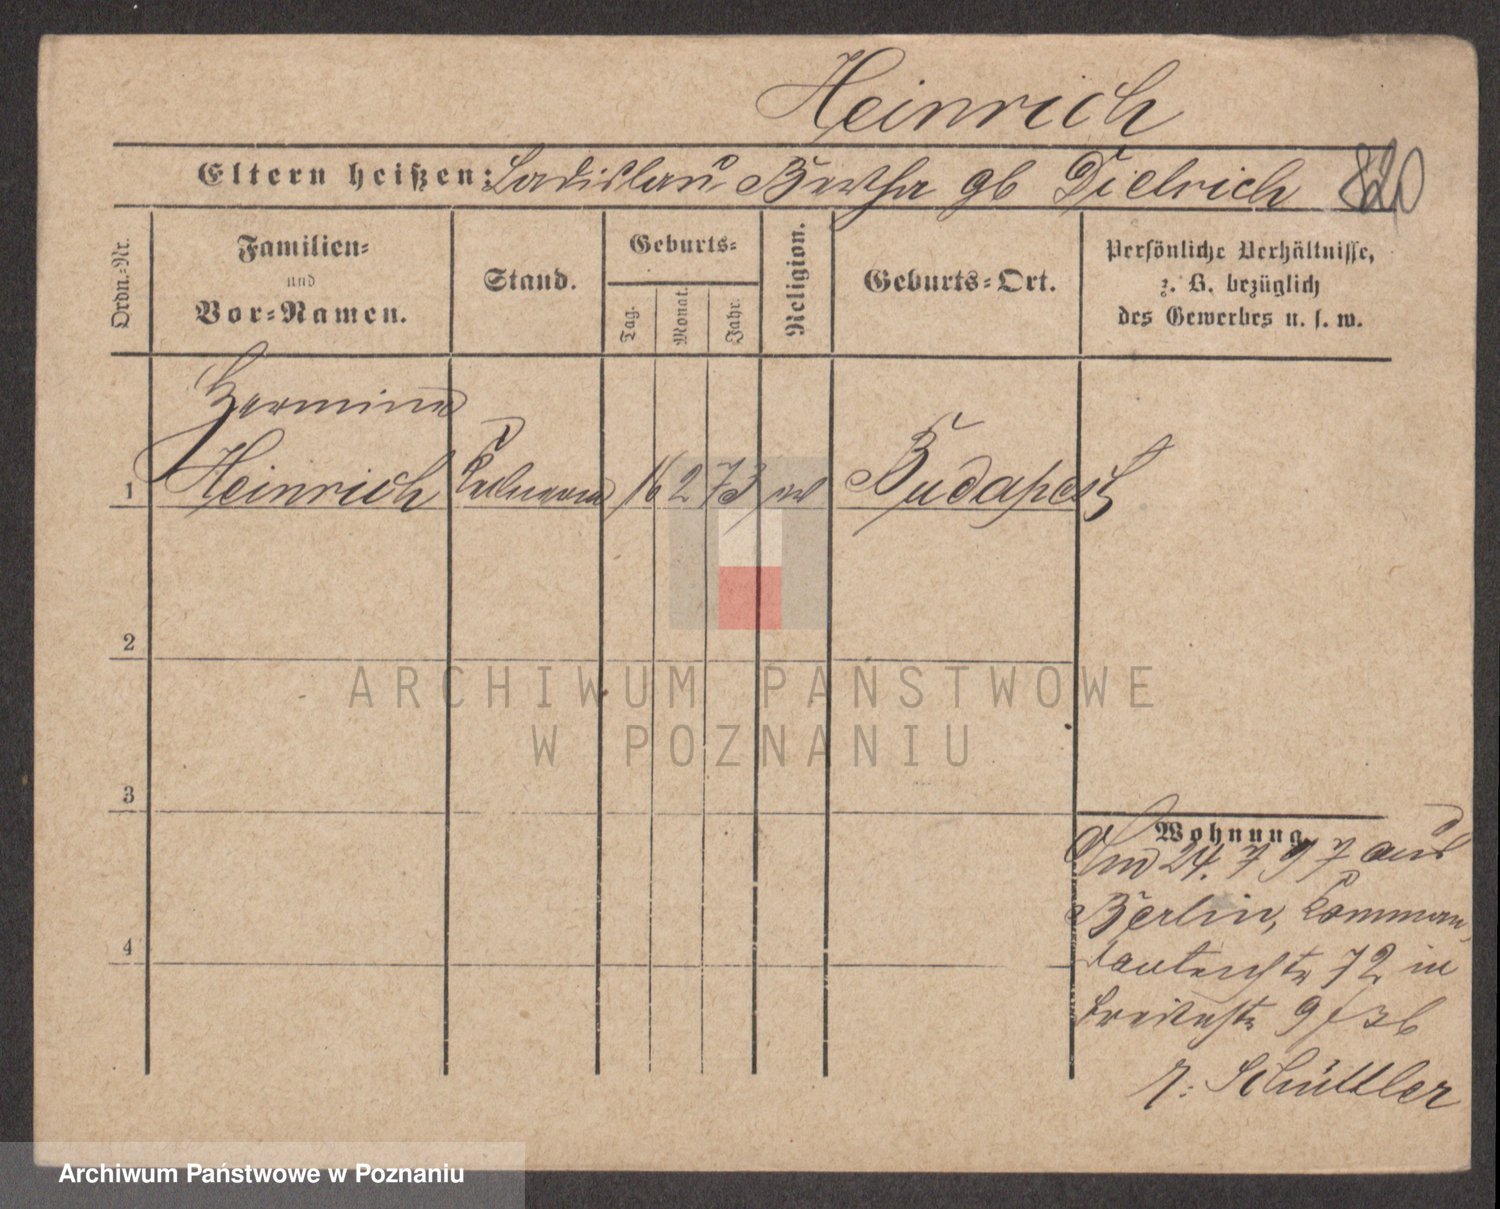 Heinrich
Eltern heißen: Ladislaus Bertha gb Dietrich 820
Ordn.-Nr.
Familien-
und
Vor-Namen.
Stand.
Geburts-
Tag.
Monat.
Jahr.
Religion.
Geburts-Ort.
Persönliche Verhältnisse,
z. B. bezüglich
des Gewerbes u. s. w.
Hermine
1 Heinrich 16 2 73 Budapest
2
ARCHIWUM PAŃSTWOWE
W POZNANIU
3
Wohnung
Am 24. 7 97 aus
Berlin, Komman
72 in
Breitestr 9
r: Schüttler
4
Archiwum Państwowe w Poznaniu